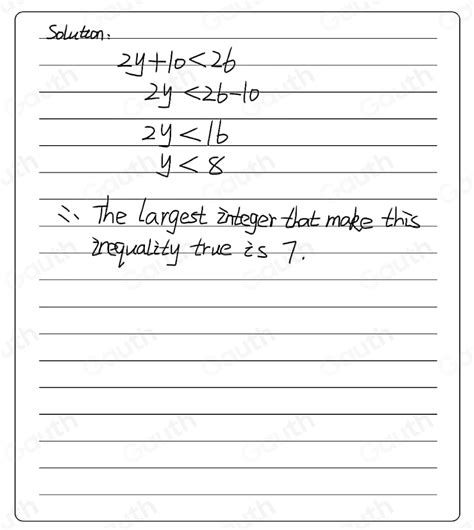 Solution:
2y+10<26
2y<26-10
2y<16
y<8
∴ The largest integer that make this
inequality true is 7.